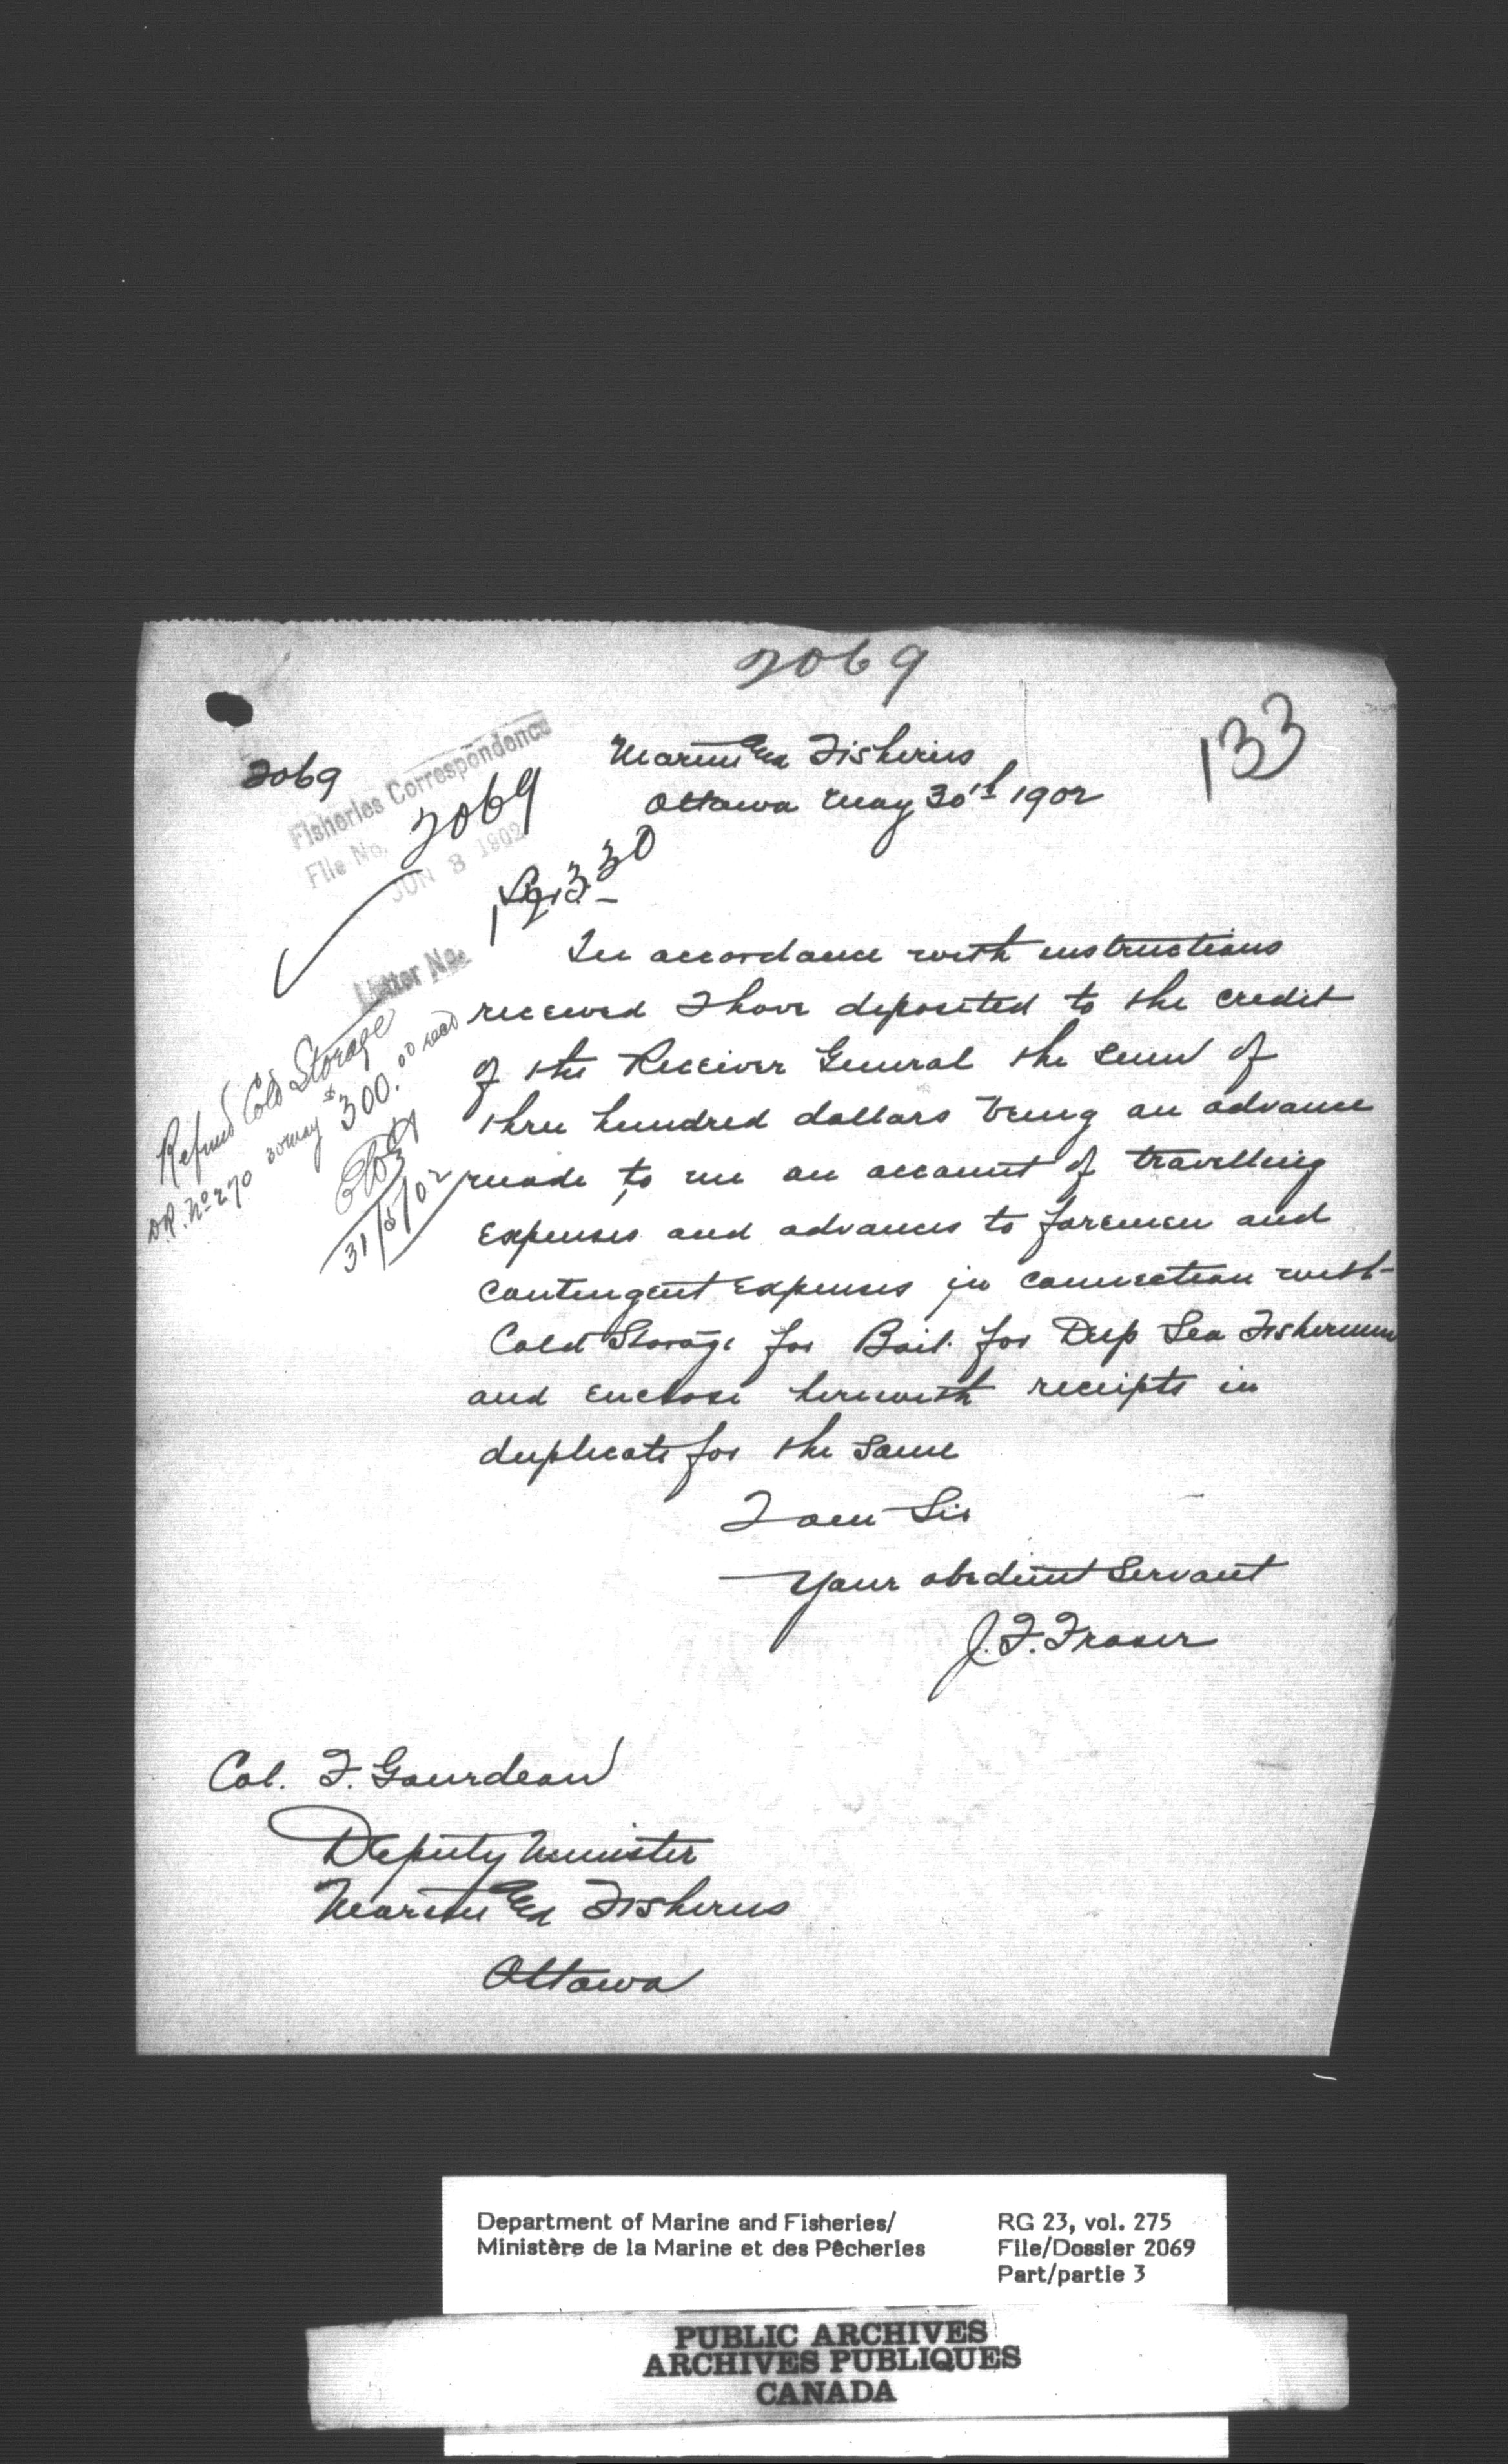 2069
133
2069
Marine and Fisheries
Ottawa May 30th 1902
Fisheries Correspondence
File No. 2069
JUN 3 1902
Letter No.
Sir
In accordance with instructions
received I have deposited to the credit
of the Receiver General the sum of
three hundred dollars being an advance
made to me on account of travelling
expenses and advances to foremen and
contingent expenses in connection with
Cold Storage for Bait for Deep Sea Fishermen
and enclose herewith receipts in
duplicate for the same
I am Sir
Your obedient servant
J. F. Fraser
Refund Cold Storage
D.R. No 270 30 May $300.00 recd
31/5/02
Col. F. Gourdeau
Deputy Minister
Marine and Fisheries
Ottawa
Department of Marine and Fisheries/
Ministère de la Marine et des Pêcheries
RG 23, vol. 275
File/Dossier 2069
Part/partie 3
PUBLIC ARCHIVES
ARCHIVES PUBLIQUES
CANADA